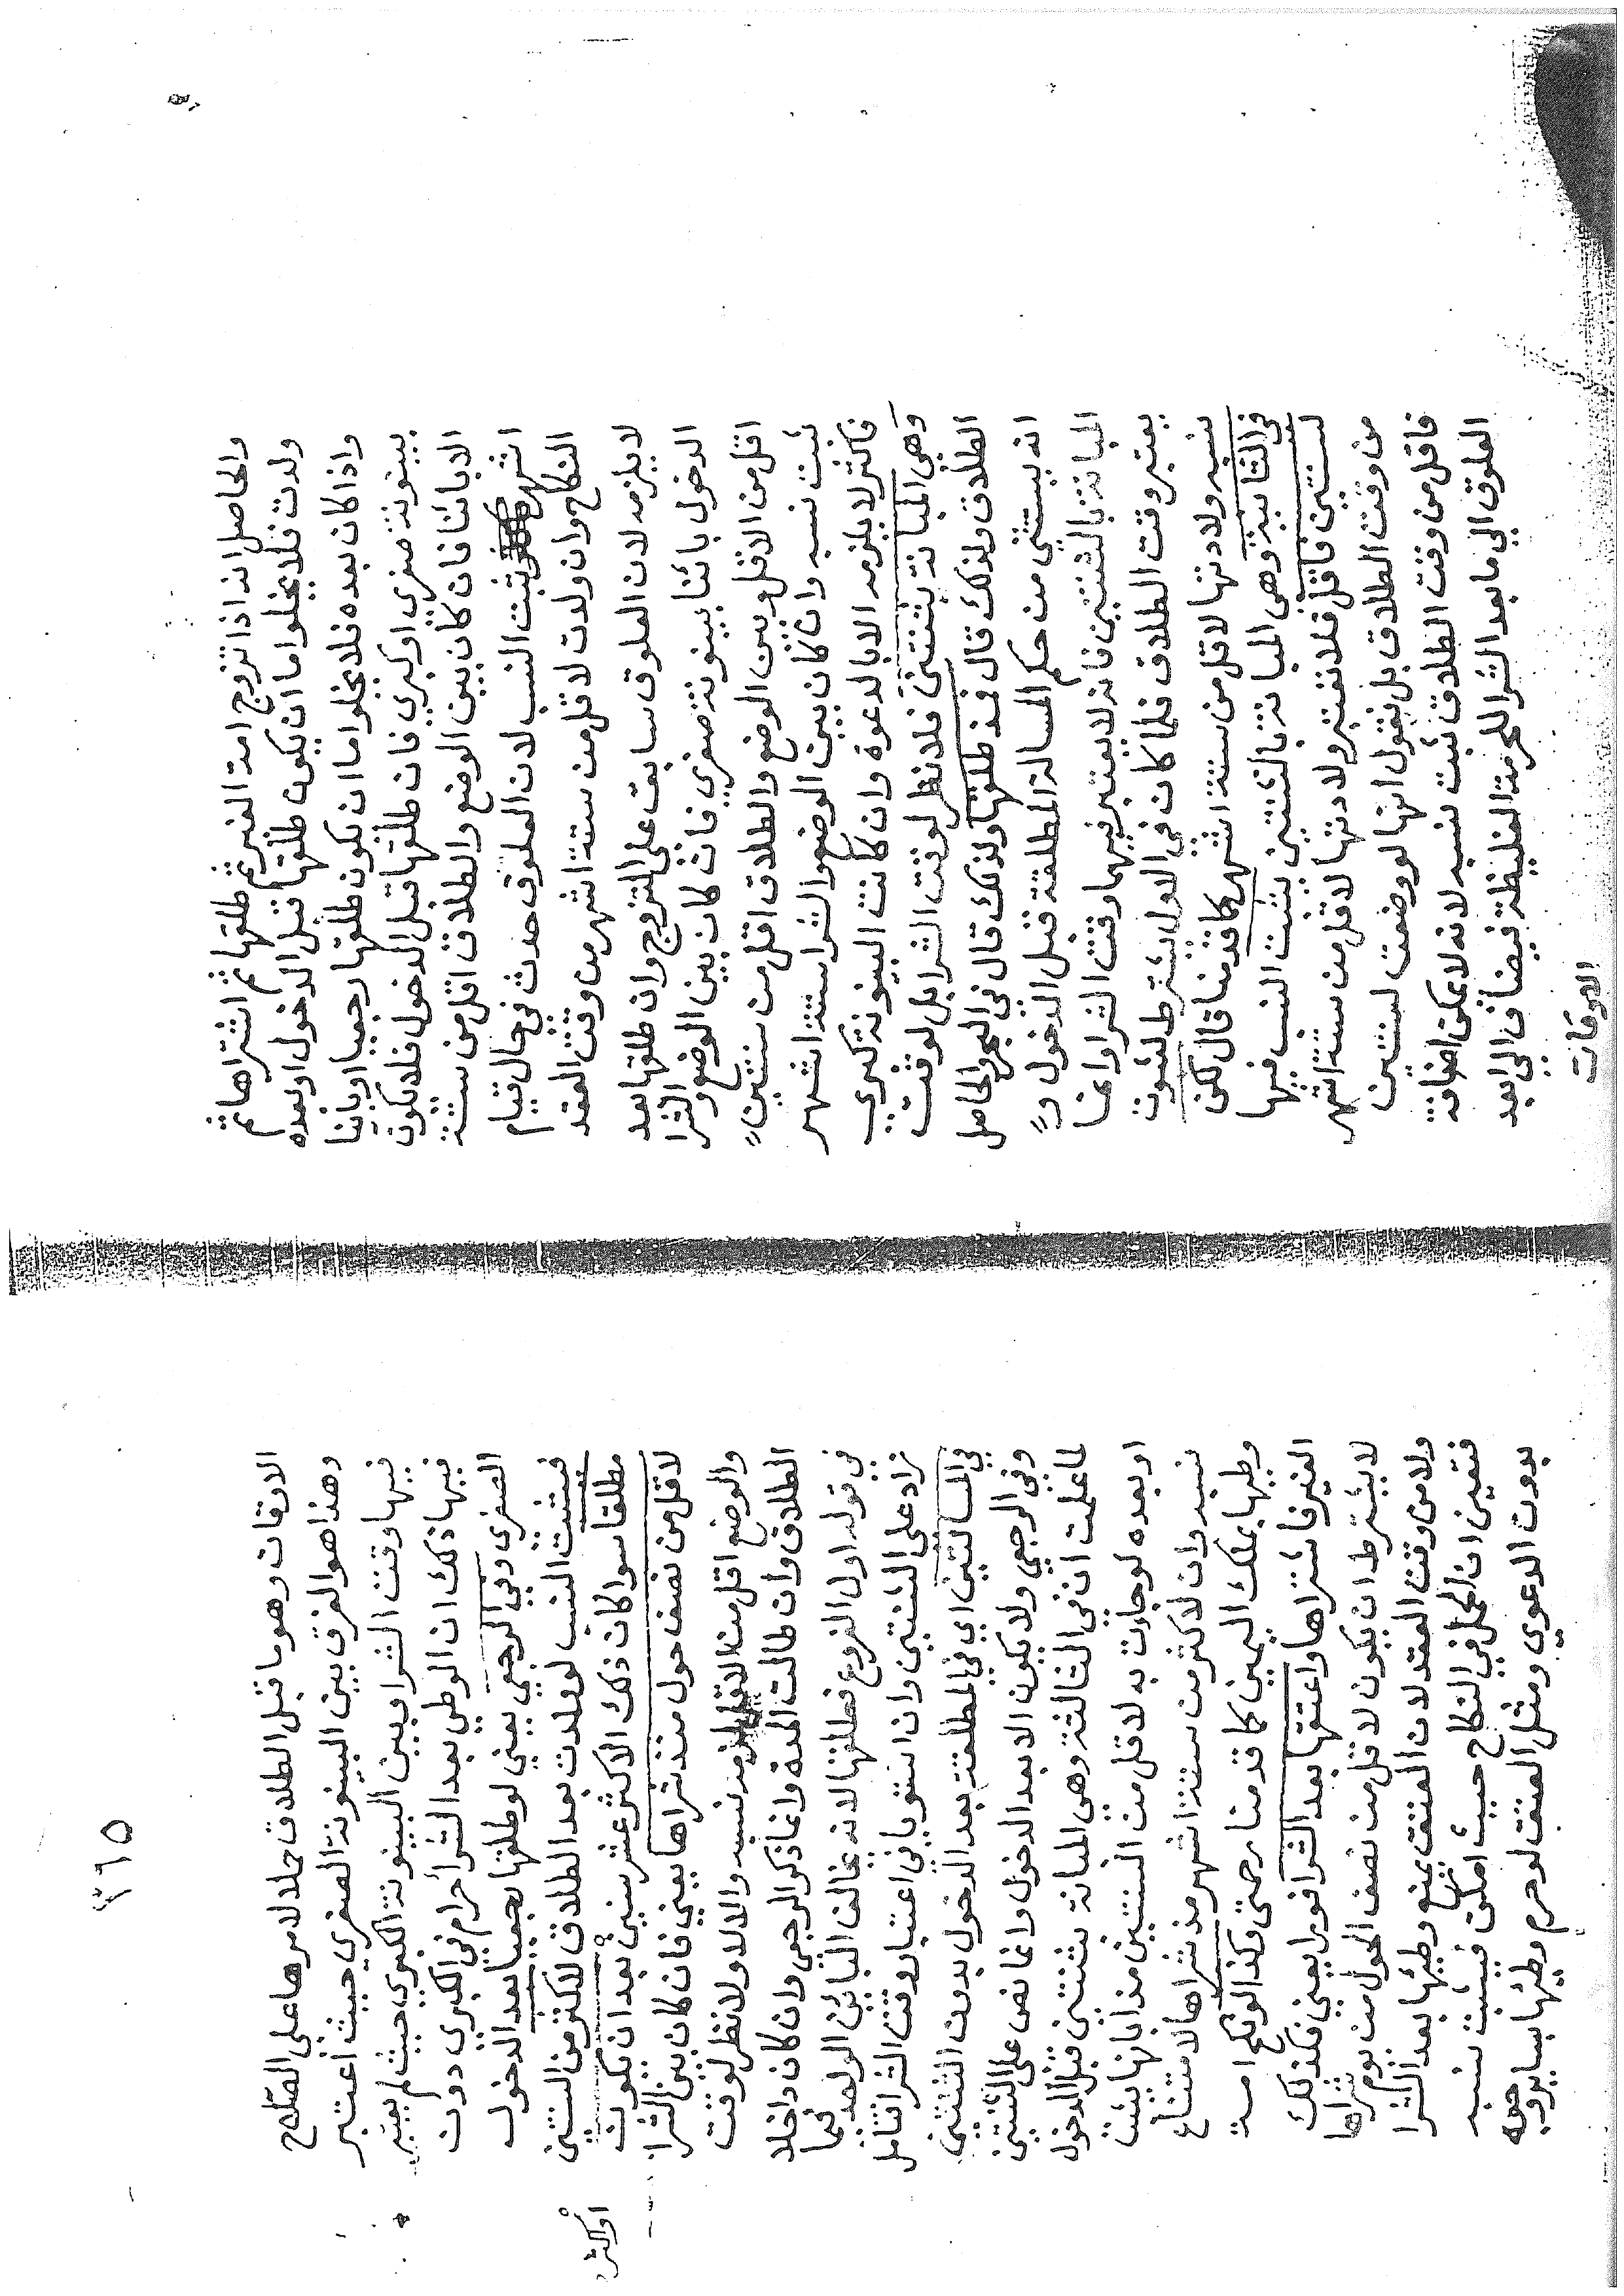 والحاصل انه اذا تزوج امة الغير ثم طلقها ثم اشتراها ثم
ولدت فلا يخلوا ما ان يكون طلقها قبل الدخول او بعده
واذا كان بعده فلا يخلوا ما ان يكون طلقها رجعيا او باينا
بينونة صغري او كبري فان طلقها قبل الدخول فلا يكون
الا بائنا فان كان بين الوضع والطلاق اقل من ستة
اشهر ثبت النسب لان العلوق حدث في حال قيام
النكاح وان ولدت لاقل من ستة اشهر من وقت العقد
لا يلزمه لان العلوق سابق على التزوج وان طلقها بعد
الدخول بائنا بينونة صغري فان كان بين الوضع والشرا
اقل من الاقل وبين الوضع والطلاق اقل من سنتين
ثبت نسبه وان كان بين الوضع والشرا ستة اشهر
فاكثر لا يلزمه الا بالدعوة وان كانت البينونة كبري
وهي المبانة بثنتين فلا نظر لوقت الشرا بل لوقت
الطلاق ولذلك قال فمذ طلقها ولذلك قال في البحر والحاصل
انه يستثنى من حكم المسالة المطلقة قبل الدخول و
المبانة بالثنتين فانه لا يعتبر فيهما وقت الشرا وانما
يعتبر وقت الطلاق فلما كان في الاول يشترط لثبوت
نسبه ولادتها لاقل من ستة اشهر كما قدمنا قال لكن
في الثانية وهي المبانة بالثنتين يثبت النسب فيها
لسنتين فاقل فلا تعتبر ولادتها لاقل من ستة اشهر
من وقت الطلاق بل نقول انها لو وضعت لسنتين
فاقل من وقت الطلاق ثبت نسبه لانه لا يمكن اضافة
العلوق الي ما بعد الشرا للحرمة الغليظة فيضاف الي ابعد
الاوقات
٣٦٥
الاوقات وهو ما قبل الطلاق حملا لامرها على الصلاح
وهذا هو الفرق بين البينونة الصغري حيث اعتبر
فيها وقت الشرا وبين البينونة الكبري حيث لم يعتبر
فيها ذلك ان الوطي بعد الشرا حرام في الكبري دون
الصغري وفي الرجعي يعني لو طلقها رجعيا بعد الدخول
فيثبت النسب لو ولدت بعد الطلاق لاكثر من السنتين
مطلقا سوا كان ذلك الاكثر عشر سنين بعد ان يكون
او اكثر
لاقل من نصف حول منذ شراها يعني فان كان بين الشرا
والوضع اقل من الاقل لزمه نسبه والا لا ولا نظر لوقت
الطلاق وان طالت المدة وانما ذكر الرجعي وان كان داخلا
في قوله اول الفروع فطلقها لانه يخالف البائن الواحد فيما
زاد على السنتين وان استويا في اعتبار وقت الشرا فتامل
في المسالتين اي في المطلقة بعد الدخول بدون الثنتين
وفي الرجعي ولا يكون الا بعد الدخول وانما نص على الثنتين
لما علمت ان في الثالثة وهي المبانة بثنتين قبل الدخول
او بعده لو جاءت به لاقل من السنتين مذ ابانها يثبت
نسبه وان لاكثر من ستة اشهر مذ شراها لامتناع
وطيها بملك اليمين كما قدمنا رحمتي وكذا لو نكح امة
الغير فاشتراها واعتقها بعد الشرا فورا يعني فكذلك
لا يشترط ان يكون لاقل من نصف الحول من يوم شراها
ولا من وقت العقد لان العتق يمنع وطيها بعد الشرا
فتعين ان الحمل في النكاح حيث امكن فيثبت نسبه
بدون الدعوي ومثل العتق لو حرم وطيها بسائر وجوه